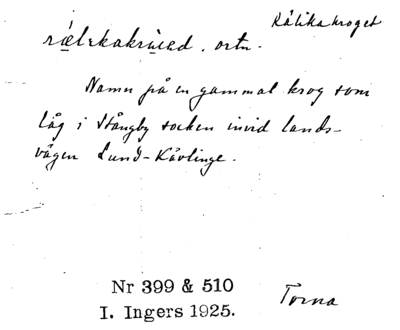 Kålikakroget
ortn.
Namn på en gammal krog som
låg i Stångby socken invid lands-
vägen Lund-Kävlinge.
Nr 399 & 510
I. Ingers 1925.
Torna